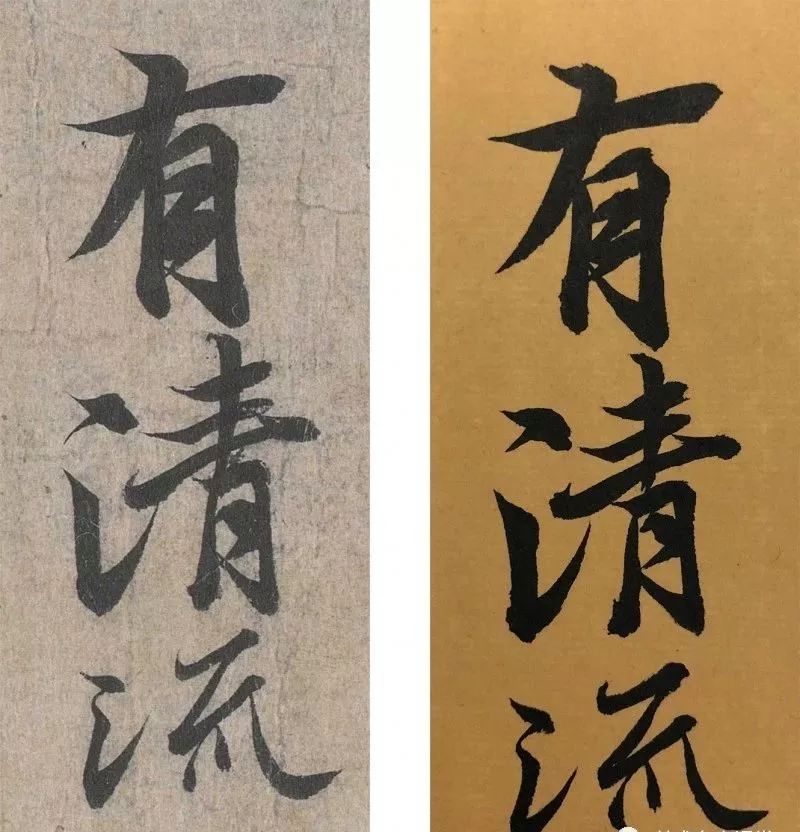 有清流
有清流